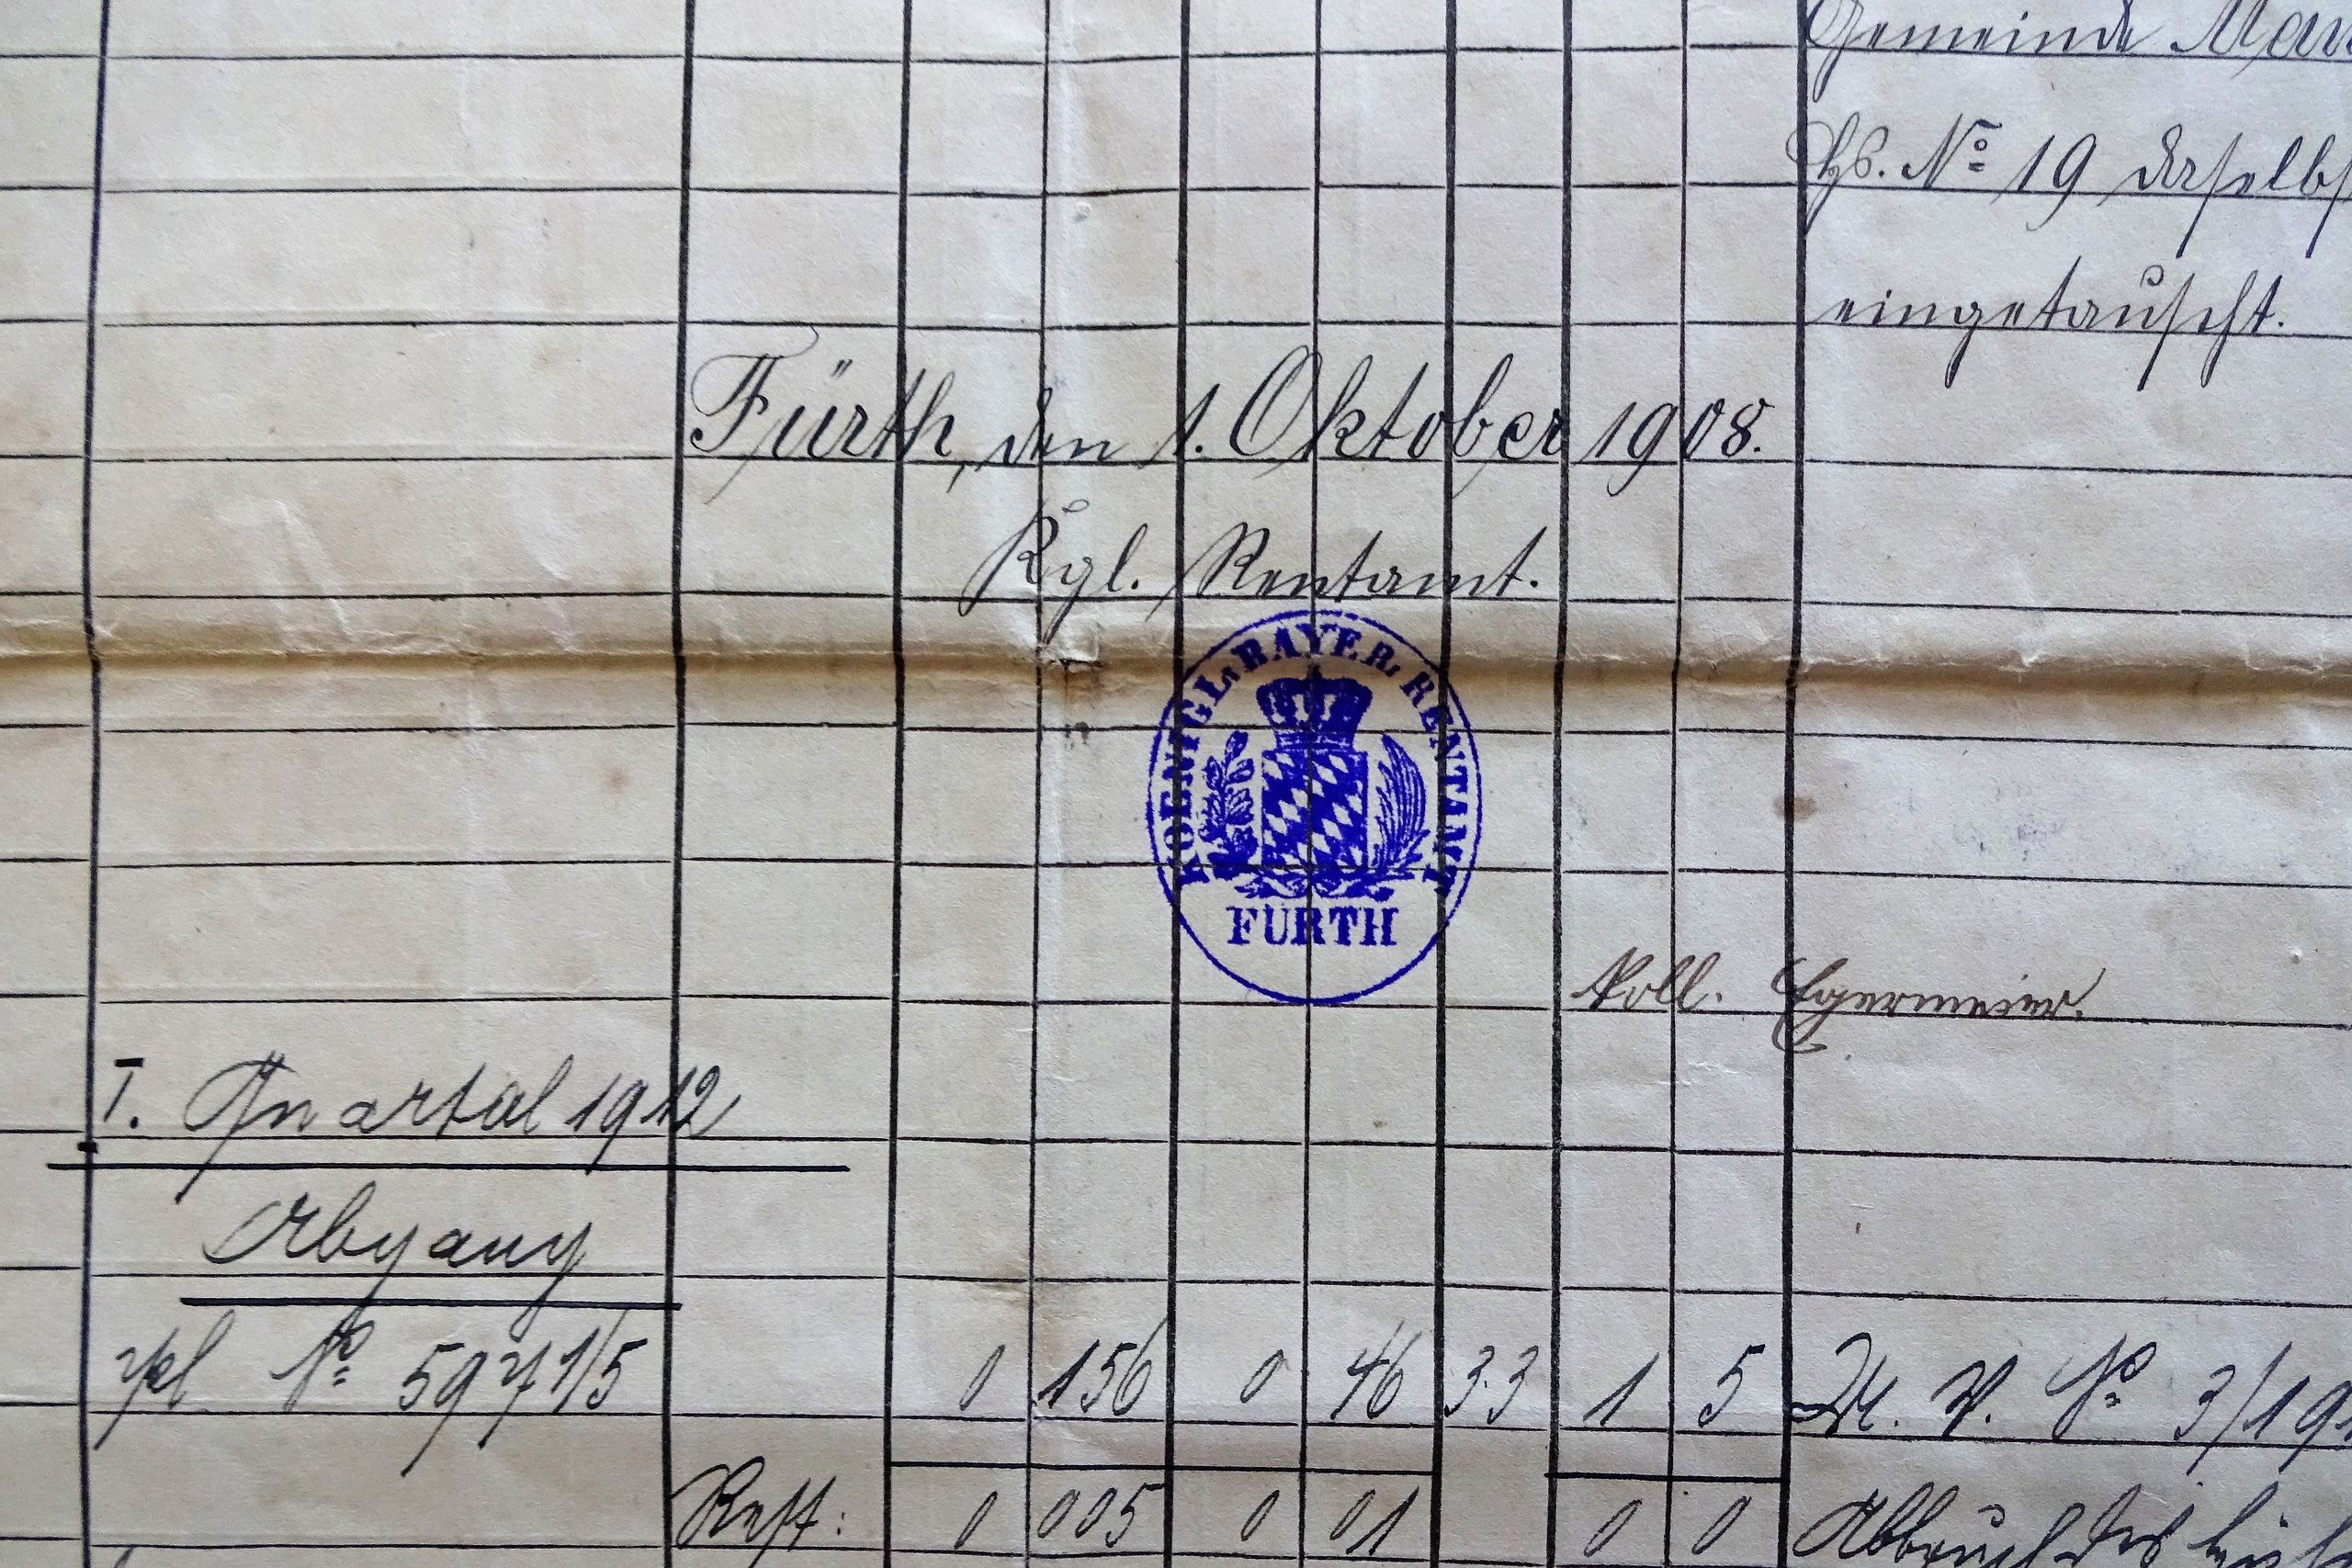 Gemeinde
Hs. No 19 daselbst
eingetauscht.
Fürth, den 1. Oktober 1908.
Kgl. Rentamt.
KOENIGL. BAYER. RENTAMT
FÜRTH
Egermeier.
I. Quartal 1912
Abgang
Pl No 597 1/5 0 156 0 46 33 1 5 No 3/19
Rest: 0 005 0 01 0 0 Abbruch des